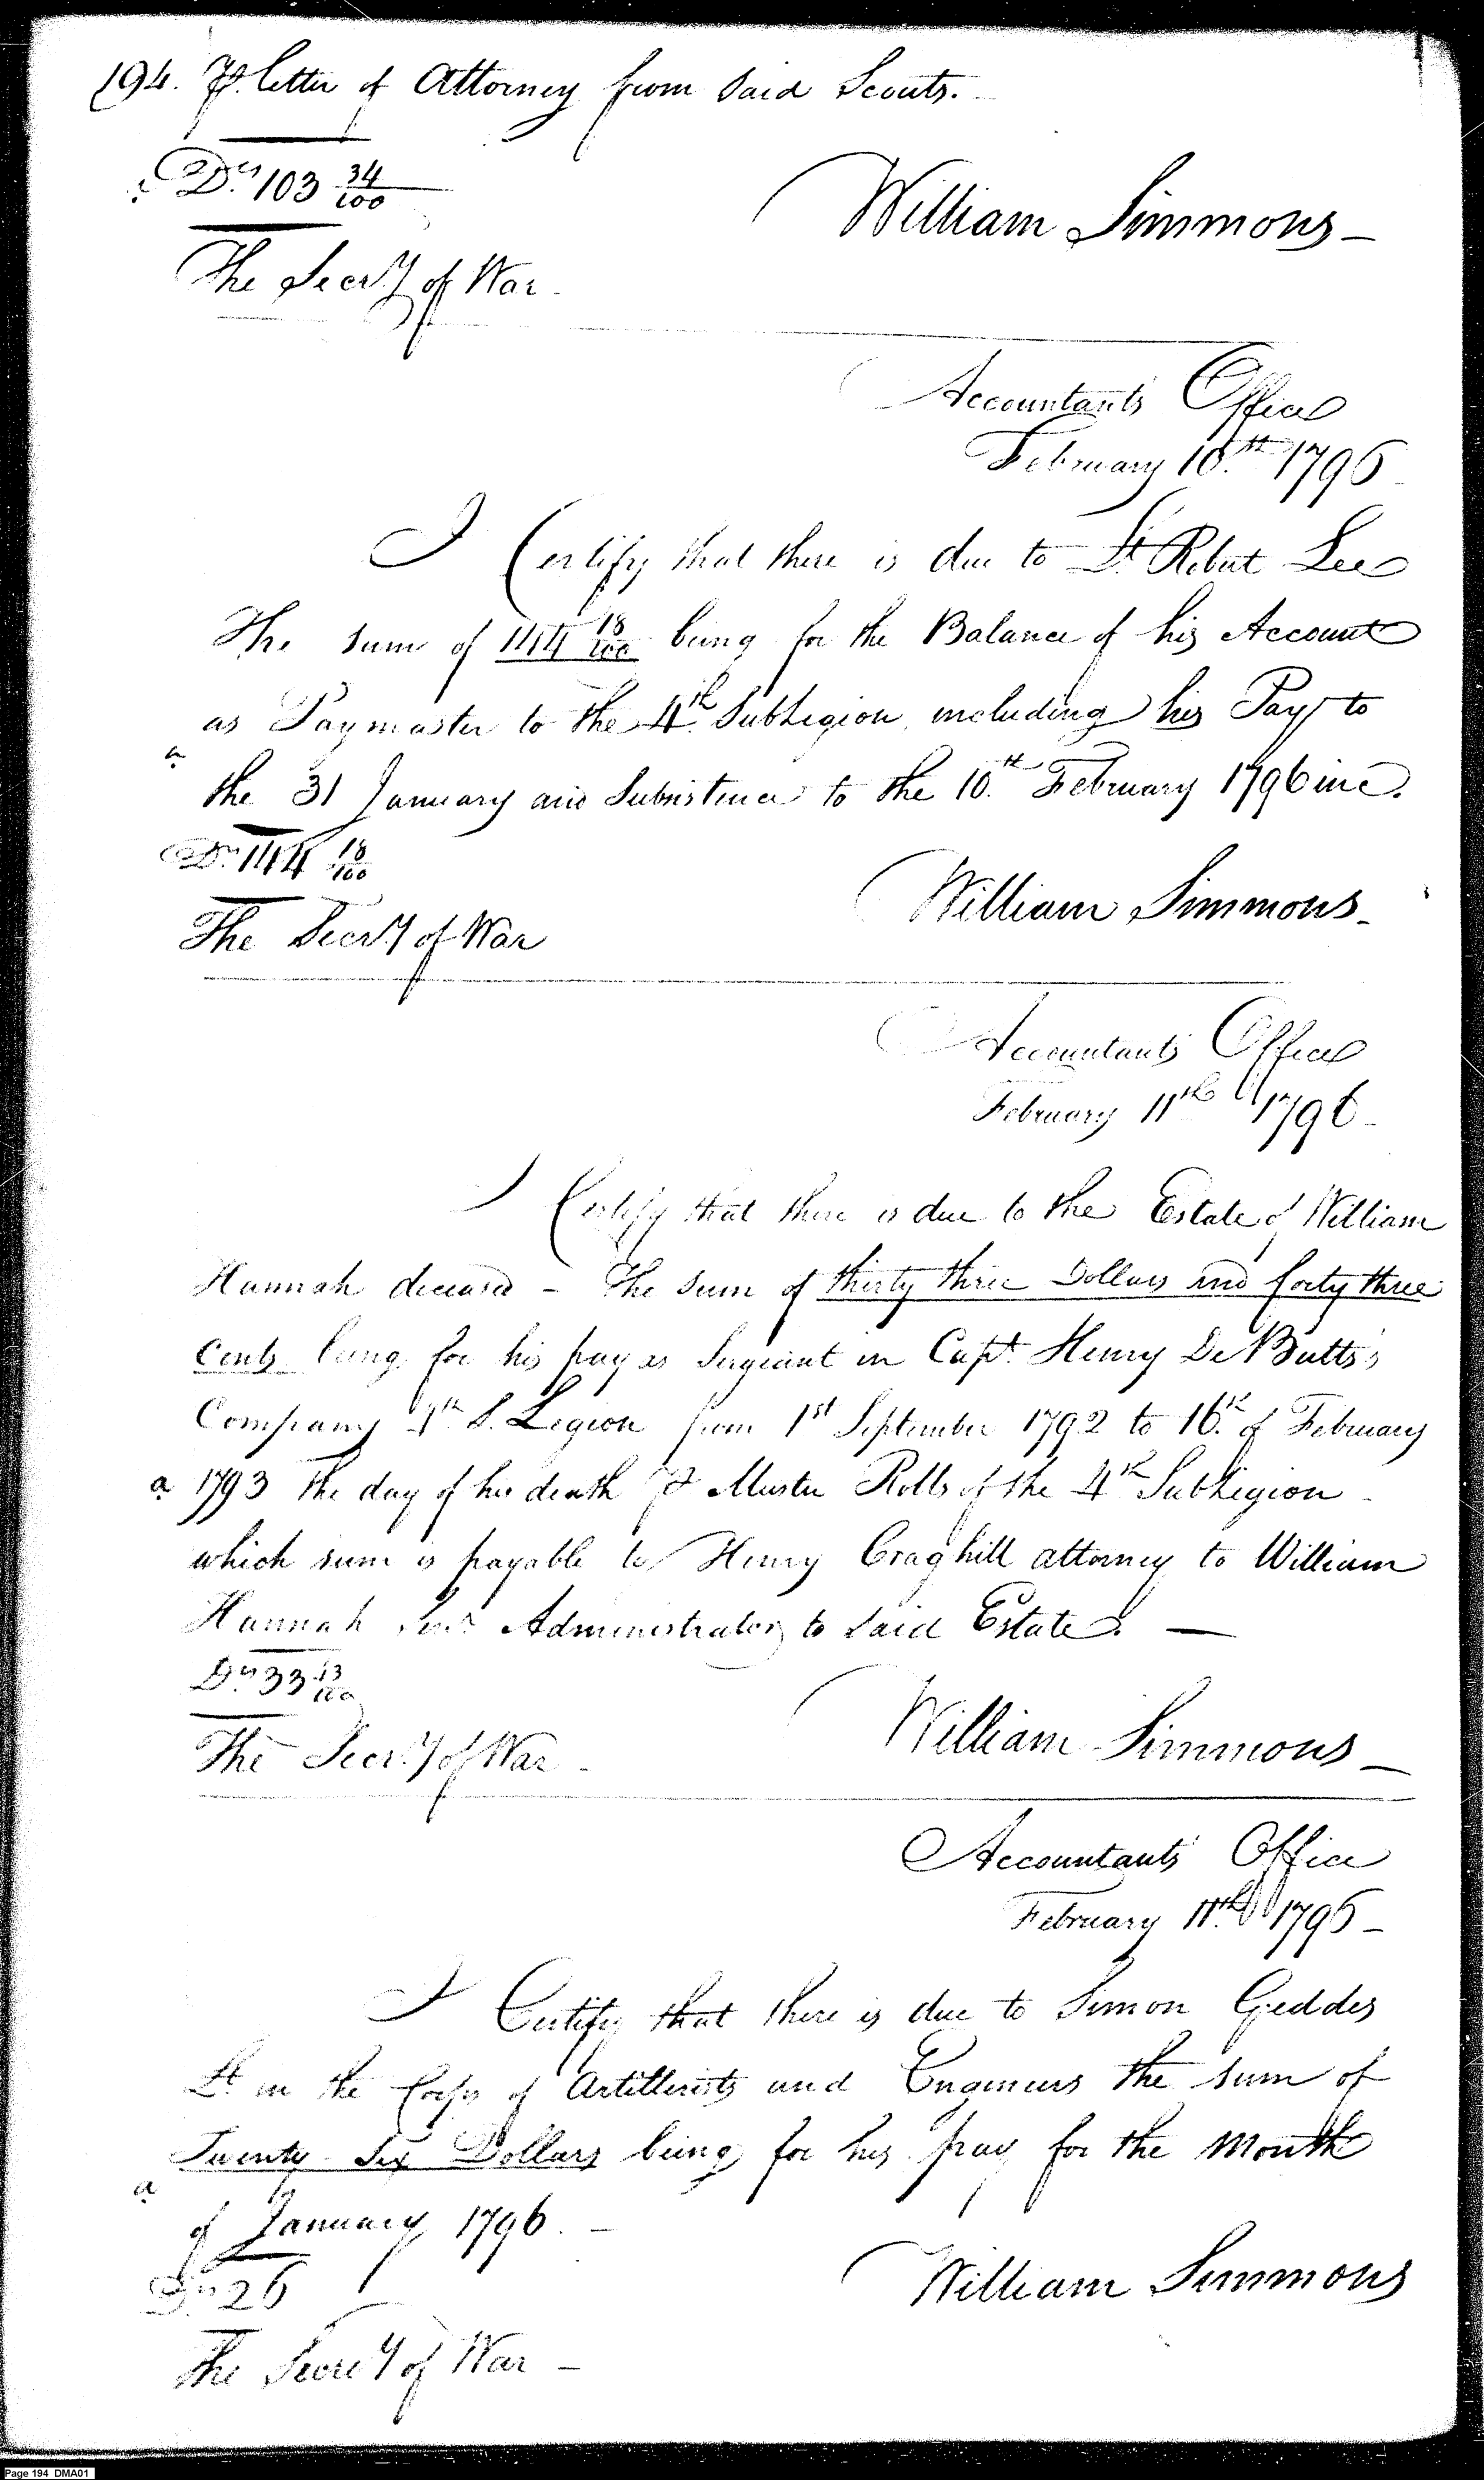 194. ⅌ letter of Attorney from said Scouts.
Drs 103 34/100
William Simmons
The Secry of War
Accountants Office
February 10th 1796
I Certify that there is due to Lt Robert Lee
The sum of 144 18/100 being for the Balance of his Account
as Paymaster to the 4th SubLegion, including his Pay to
a
the 31 January and Subsistence to the 10th February 1796 inc.
Drs 144 18/100
William Simmons
The Secry of War
Accountants Office
February 11th 1796
I Certify that there is due to the Estate of William
Hannah deceased - The sum of thirty three Dollars and forty three
Cents being for his pay as Sergeant in Capt. Henry De Butts's
Company 4th S. Legion from 1st September 1792 to 16th of February
a 1793 the day of his death ⅌ Muster Rolls of the 4th SubLegion
which sum is payable to Henry Craghill attorney to William
Hannah Senr Administrator to said Estate. —
Drs 33 43/100
William Simmons —
The Secry of War
Accountants Office
February 11th 1796 —
I Certify that there is due to Simon Geddes
Lt in the Corps of Artillerists and Engineers the sum of
Twenty Six Dollars being for his pay for the Month
a
of January 1796. —
Drs 26
William Simmons
The Secrey of War —
Page 194 DMA01